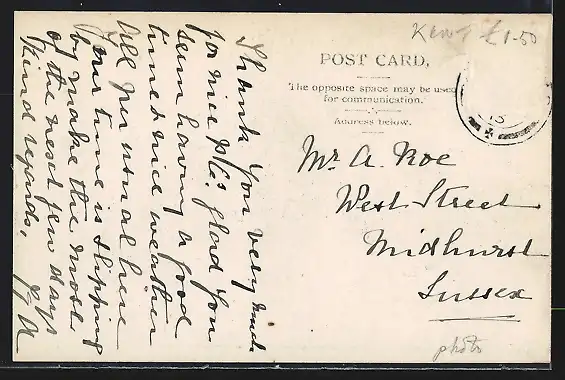 Kent £1.50
POST CARD.
The opposite space may be used
for communication.
Address below.
15
Mr. A. Roe
West Street
Midhurst
Sussex
photo
Thank you very much
for nice p/cs. glad you
seem having a good
time & nice weather
All per usual here
your time is slipping
by make the most
of the next few days
Kind regards,